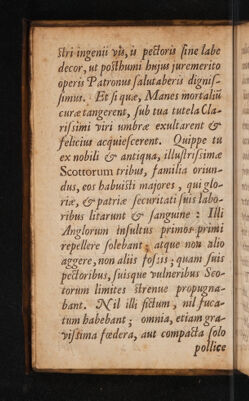 stri ingenii vis, is pectoris sine labe
decor, ut posthumi hujus jure merito
operis Patronus salutaberis dignis-
simus. Et si quæ, Manes mortaliū
curæ tangerent, sub tua tutela Cla-
rissimi viri umbræ exultarent &
felicius acquiescerent. Quippe tu
ex nobili & antiqua, illustrissimæ
Scottorum tribus, familia oriun-
dus, eos habuisti majores, qui glo-
riæ, & patriæ securitati suis labo-
ribus litarunt & sanguine: Illi
Anglorum insultus primos primi
repellere solebant, atque non alio
aggere, non aliis fossis; quam suis
pectoribus, suisque vulneribus Sco-
torum limites strenue propugna-
bant. Nil illi fictum, nil fuca-
tum habebant; omnia, etiam gra-
vissima fœdera, aut compacta solo
pollice